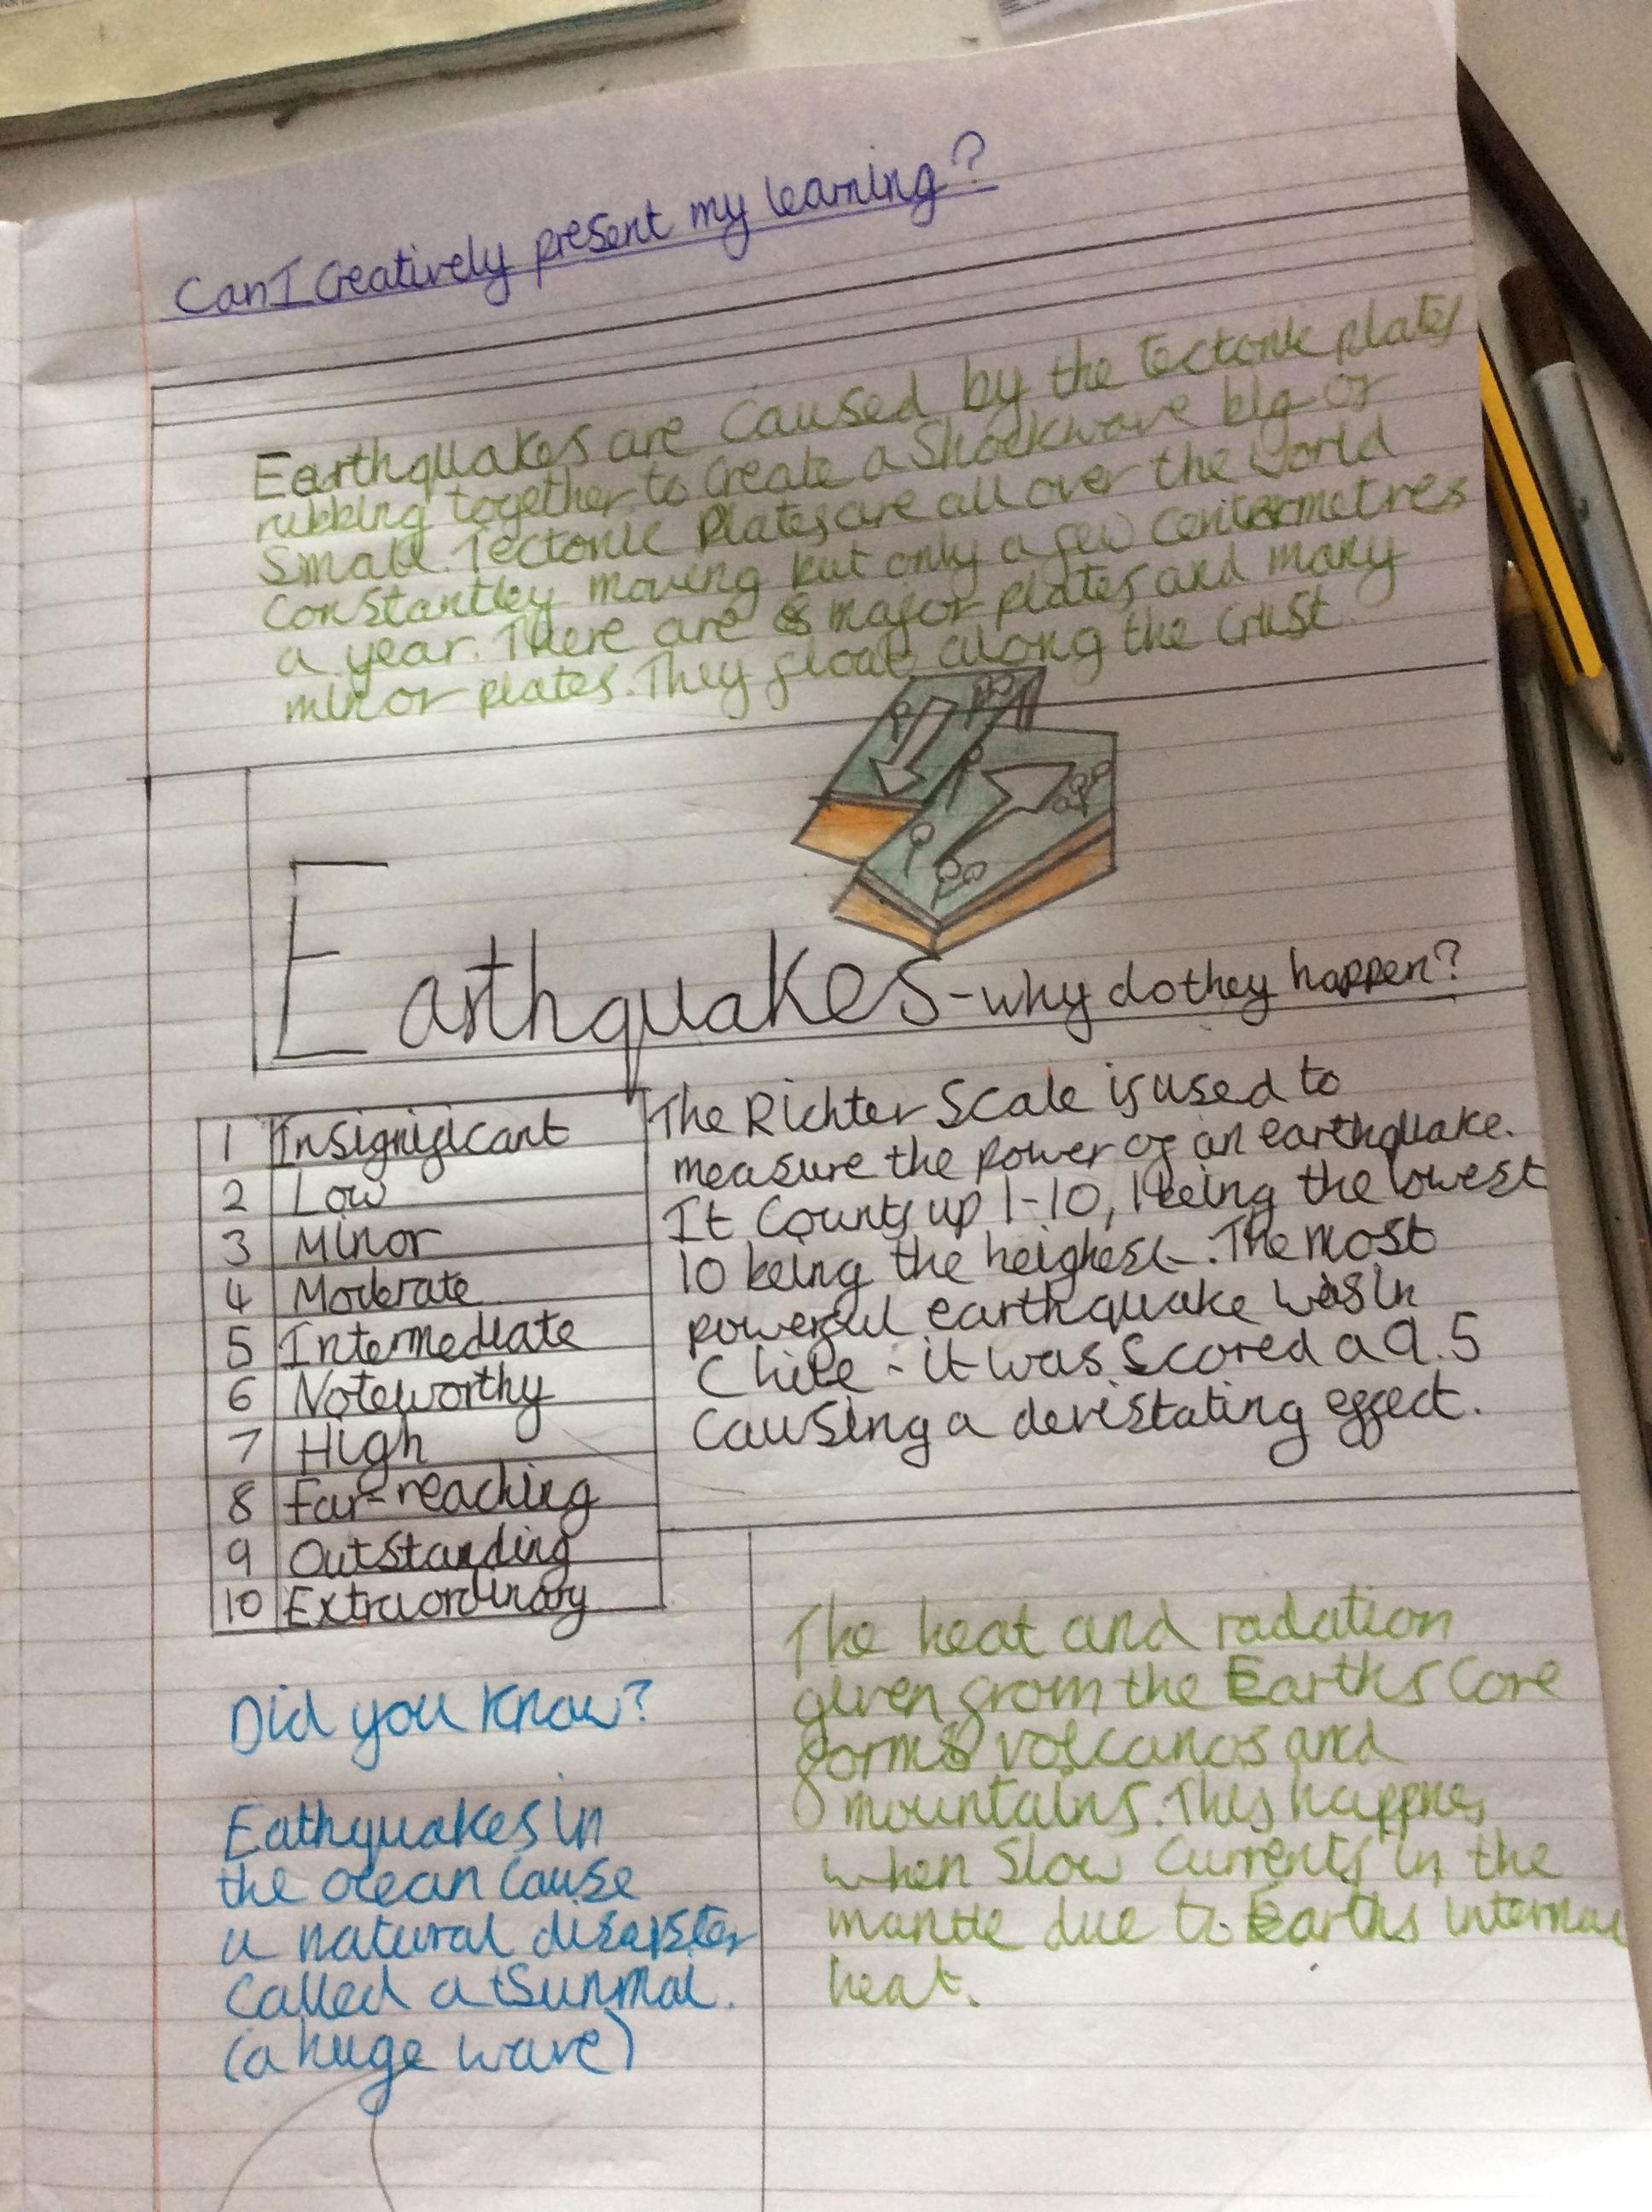 Can I creatively present my learning?
Earthquakes are caused by the tectonic plates
rubbing together to create a shockwave big or
small. Tectonic plates are all over the world
constantley moving but only a few centermetres
a year. There are 8 major plates and many
minor plates. They float along the crust.
Earthquakes - why do they happen?
1 Insignificant
2 Low
3 Minor
4 Moderate
5 Intermediate
6 Noteworthy
7 High
8 Far-reaching
9 Outstanding
10 Extraordinary
The Richter Scale is used to
measure the power of an earthquake.
It counts up 1-10, 1 being the lowest
10 being the heighest. The most
powerful earthquake was in
Chile - it was scored a 9.5
causing a devistating effect.
Did you know?
Eathquakes in
the ocean cause
a natural disaster
called a tsunmai.
(a huge wave)
The heat and radation
given from the Earths core
forms volcanos and
mountains. This happnes
when slow currents in the
mantle due to Earths internal
heat.